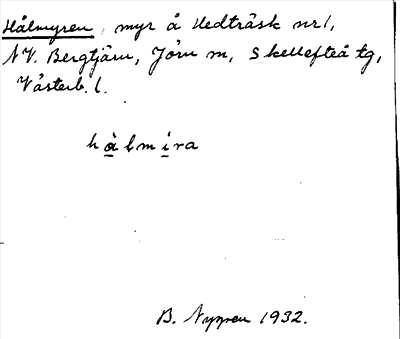 Hålmyren, myr å Hedträsk nr1,
NV. Bergtjärn, Jörn sn, Skellefteå tg,
Västerb. l.
hàlmira
B. Nygren 1932.